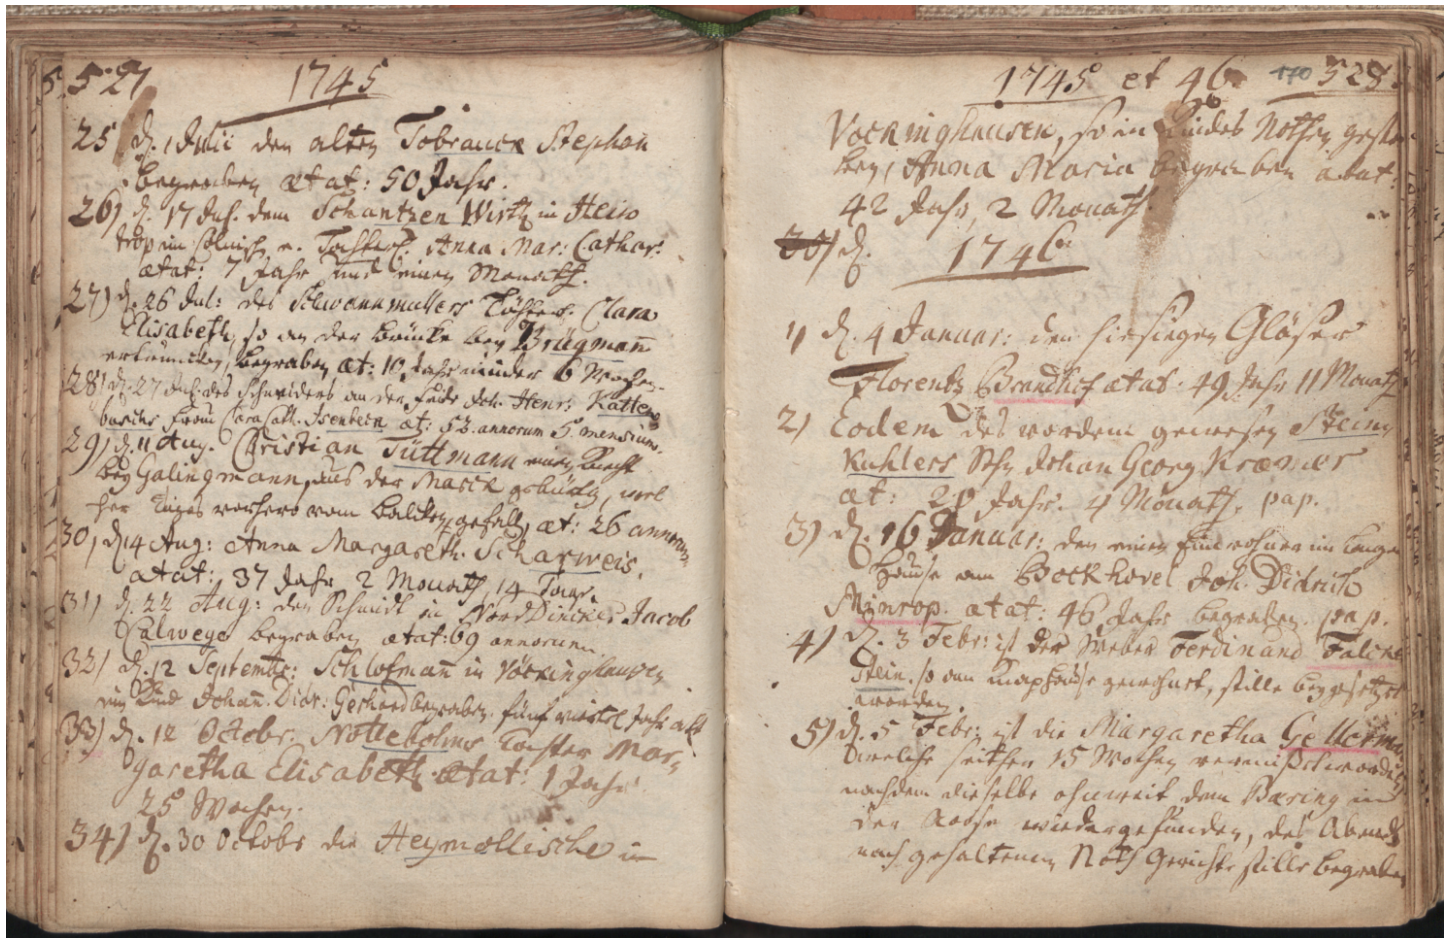 527 1745
25) d. 1 Julii den alten Tobranck Stephan
begraben ætat: 50 Jahr.
26) d. 17 Jul. dem Schantzen Wirth in Hein
trop im Cölnisch. e. Tochterl. Anna Mar: Cathar:
ætat: 7 Jahr und einen Monath.
27) d. 26 Jul: des Töchterl. Clara
Elisabeth, so an der brücke bey Brügmann
ertruncken, begraben æt: 10 Jahr minder 6 Wochen.
28) d. 27 Jul. des Schneiders an der Joh. Henr: Katten
buschs Frau Clara Cath. Isenbein æt: 52 annorum 5 mensium.
29) d. 11 Aug. Christian Tüttmann einen Knecht
bey Galingmann, aus der Marck gebürtig, wel
cher Tages vorhero vom balcken gefall, æt: 26 annorum
30) d. 14 Aug: Anna Margareth. Scharweis.
ætat: 37 Jahr 2 Monath, 14 Tage.
31) d. 22 Aug: der Schmidt in NordDincker Jacob
Calwege begraben ætat: 69 annorum.
32) d. 12 Septembr: Schlofmann in Vöckinghausen
ein Kind Johann Didr: Gerhard begraben. fünf viertel Jahr alt
33) d. 12 Octobr. Nottebohms Tochter Mar,
garetha Elisabeth ætat: 1 Jahr
25 Wochen.
34) d. 30 Octobr die Heymollische in
1745 et 46. 170 528
Vöckinghausen, so in Kindes Nöthen gestor
ben, Anna Maria begraben ætat:
42 Jahr, 2 Monath.
d.
1746
1) d. 4 Januar: den hiesigen Gläser
Florentz Brandhof ætat: 49 Jahr 11 Monath
2) Eodem des vordem gewesen Stein
Kuhlers Sohn Johan Georg Kræmer
æt: Jahr. 4 Monath. pap.
3) d. 16 Januar: den einen Einwohner im langen
Hause am Bockhövel Joh. Didrich
Minrop. ætat: 46 Jahr begraben. pap.
4) d. 3 Febr: ist der Weber Ferdinand Falcken
stein, so am gewohnt, stille beygesetzet
worden.
5) d. 5 Febr: ist die Margaretha Gellerman
welche seither 15 Wochen vermißet worden,
nachdem dieselbe ohnweit dem Bæring in
der wiedergefunden, des Abends
nach gehaltenem Noth Gerichte stille begraben